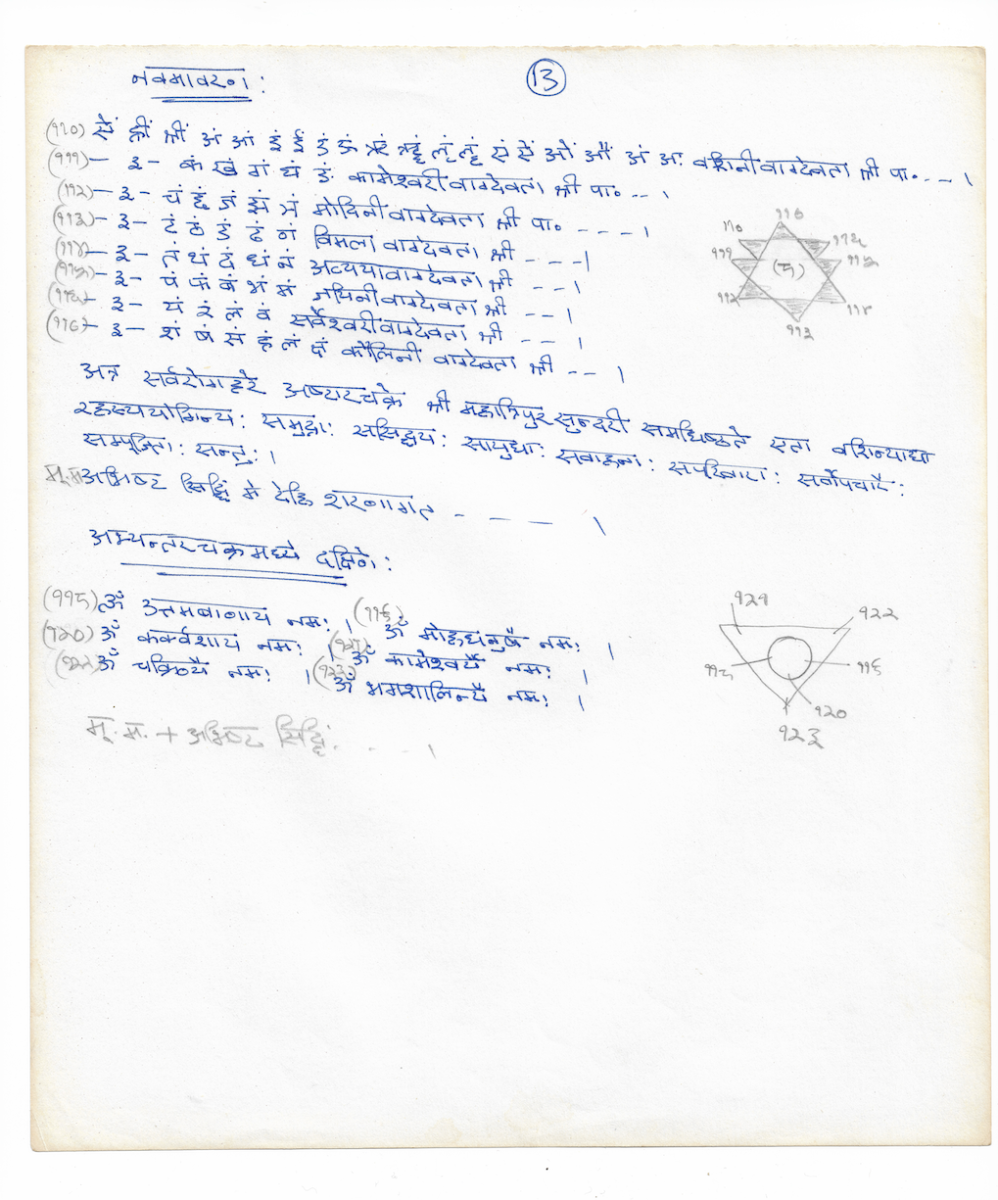 नवमावरण :
13
(११०) सें ह्रीं श्रीं अं आं इं ईं उं ऊं ऋं ॠं लृं लॄं सं सें ओं औं अं अः वशिनीवाग्देवता श्री पा॰ - - - ।
(१११) - ३ - कं खं गं घं ङं कामेश्वरीवाग्देवता श्री पा॰ - - ।
(११२) - ३ - चं छं जं झं ञं मोदिनीवाग्देवता श्री पा॰ - - - - ।
(११३) - ३ - टं ठं डं ढं णं विमला वाग्देवता श्री - - - ।
(११४) - ३ - तं थं दं धं नं अव्ययावाग्देवता श्री - - ।
(११५) - ३ - पं फं बं भं मं जयिनीवाग्देवता श्री - - ।
(११६) - ३ - यं रं लं वं सर्वेश्वरीवाग्देवता श्री - - ।
(११७) - ३ - शं षं सं हं लं क्षं कौलिनी वाग्देवता श्री - - ।
११०
१११
११२
११३
११४
अत्र सर्वरोगहरे अष्टारचक्रे श्री महात्रिपुरसुन्दरी समधिष्ठते एता वशिन्याद्या
रहस्ययोगिन्य : समुद्रा : ससिद्धय : सायुधा : सवाहना : सपरिवारा : सर्वोपचारै :
सम्पूजिता : सन्तु : ।
मू.म. अभिष्ट सिद्धिं मे देहि शरणागत - - - - ।
अभ्यन्तरचक्रमध्ये दक्षिणे :
(११८) ॐ उत्तमबाणाय नम : । (११९) ॐ मोहधनुषे नम : ।
(१२०) ॐ कर्कशाय नम : । (१२१) ॐ कामेश्वर्यै नम : ।
(१२२) ॐ वज्रिण्यै नम : । (१२३) ॐ भगशालिन्यै नम : ।
१२१
१२२
११८
११९
१२०
१२३
मू. म. + अभिष्ट सिद्धिं . . . . ।